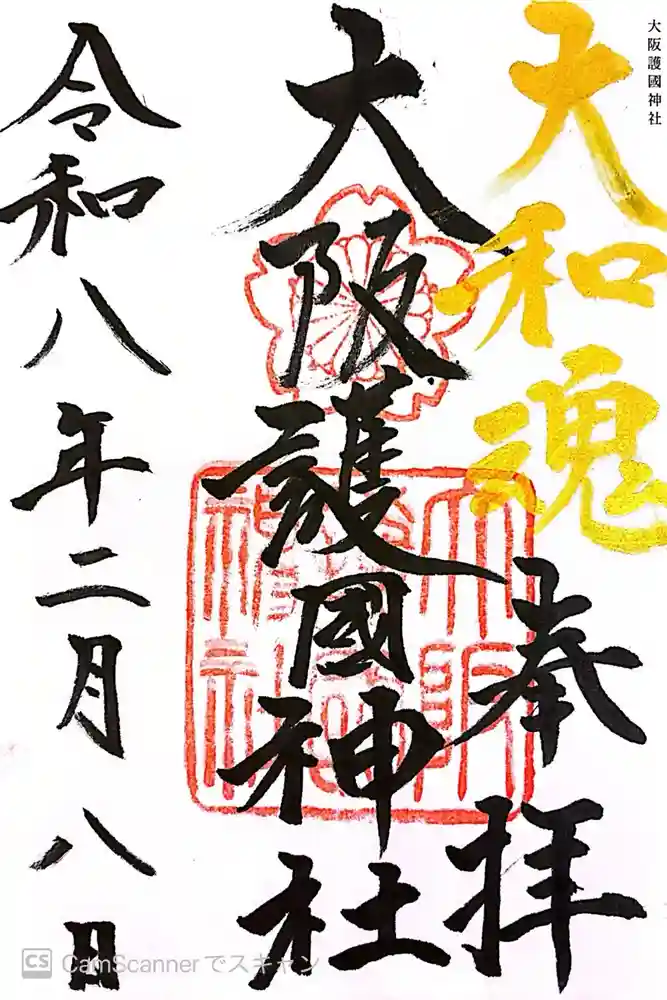 大阪護國神社
大和魂
奉拝
大阪護國神社
令和八年二月八日
大阪護國神社
CS CamScannerでスキャン